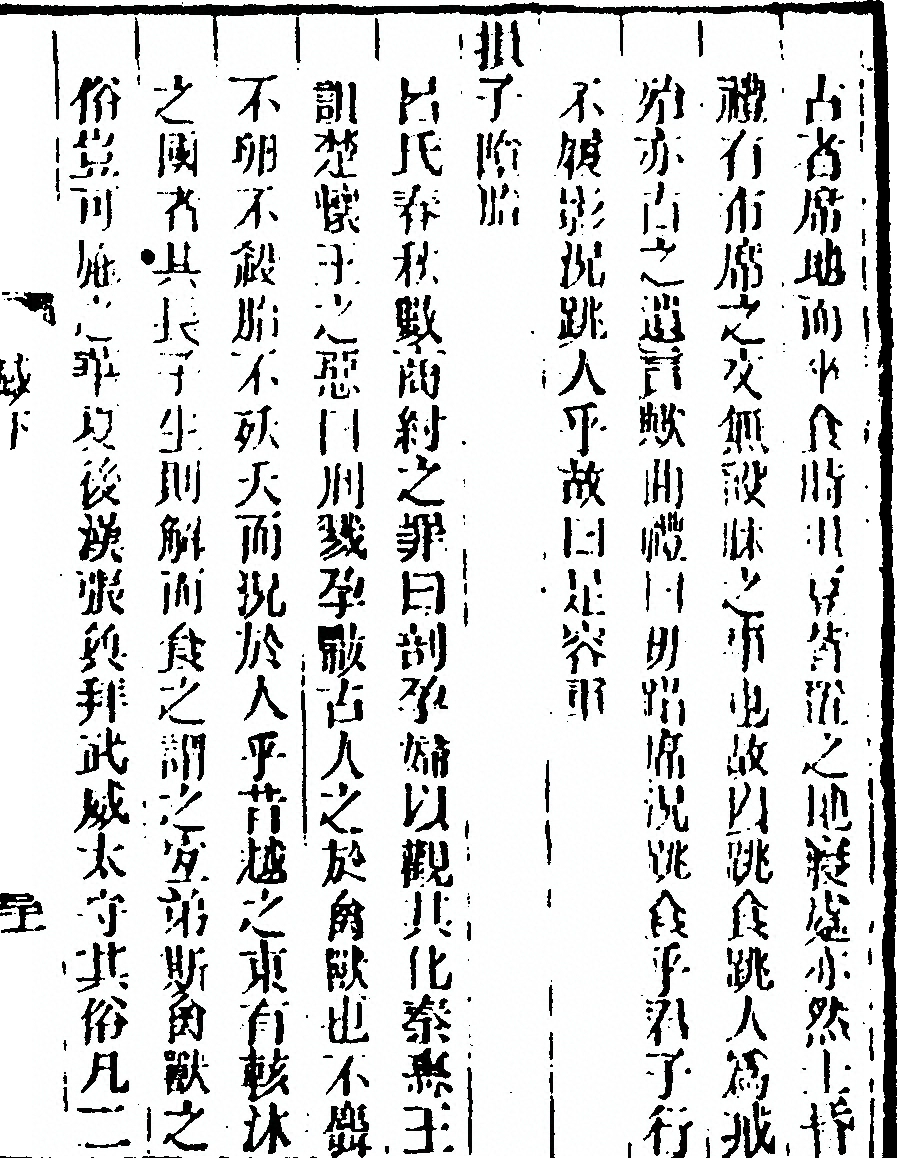 古者席地而坐食時俎豆皆設之地寢處亦然士昏
禮有布席之文無設牀之事也故以跳食跳人爲戒
殆亦古之遺言歟曲禮曰毋踖席況跳食乎君子行
不履影況跳人乎故曰是容事
損子墮胎
呂氏春秋數商紂之罪曰剖孕婦以觀其化秦惠王
詛楚懷王之惡曰刑戮孕婦古人之於禽獸也不麛
不卵不殺胎不殀夭而況於人乎昔越之東有輆沐
之國者其長子生則解而食之謂之宜弟斯禽獸之
俗豈可施之華夏後漢張奐拜武威太守其俗凡二
下